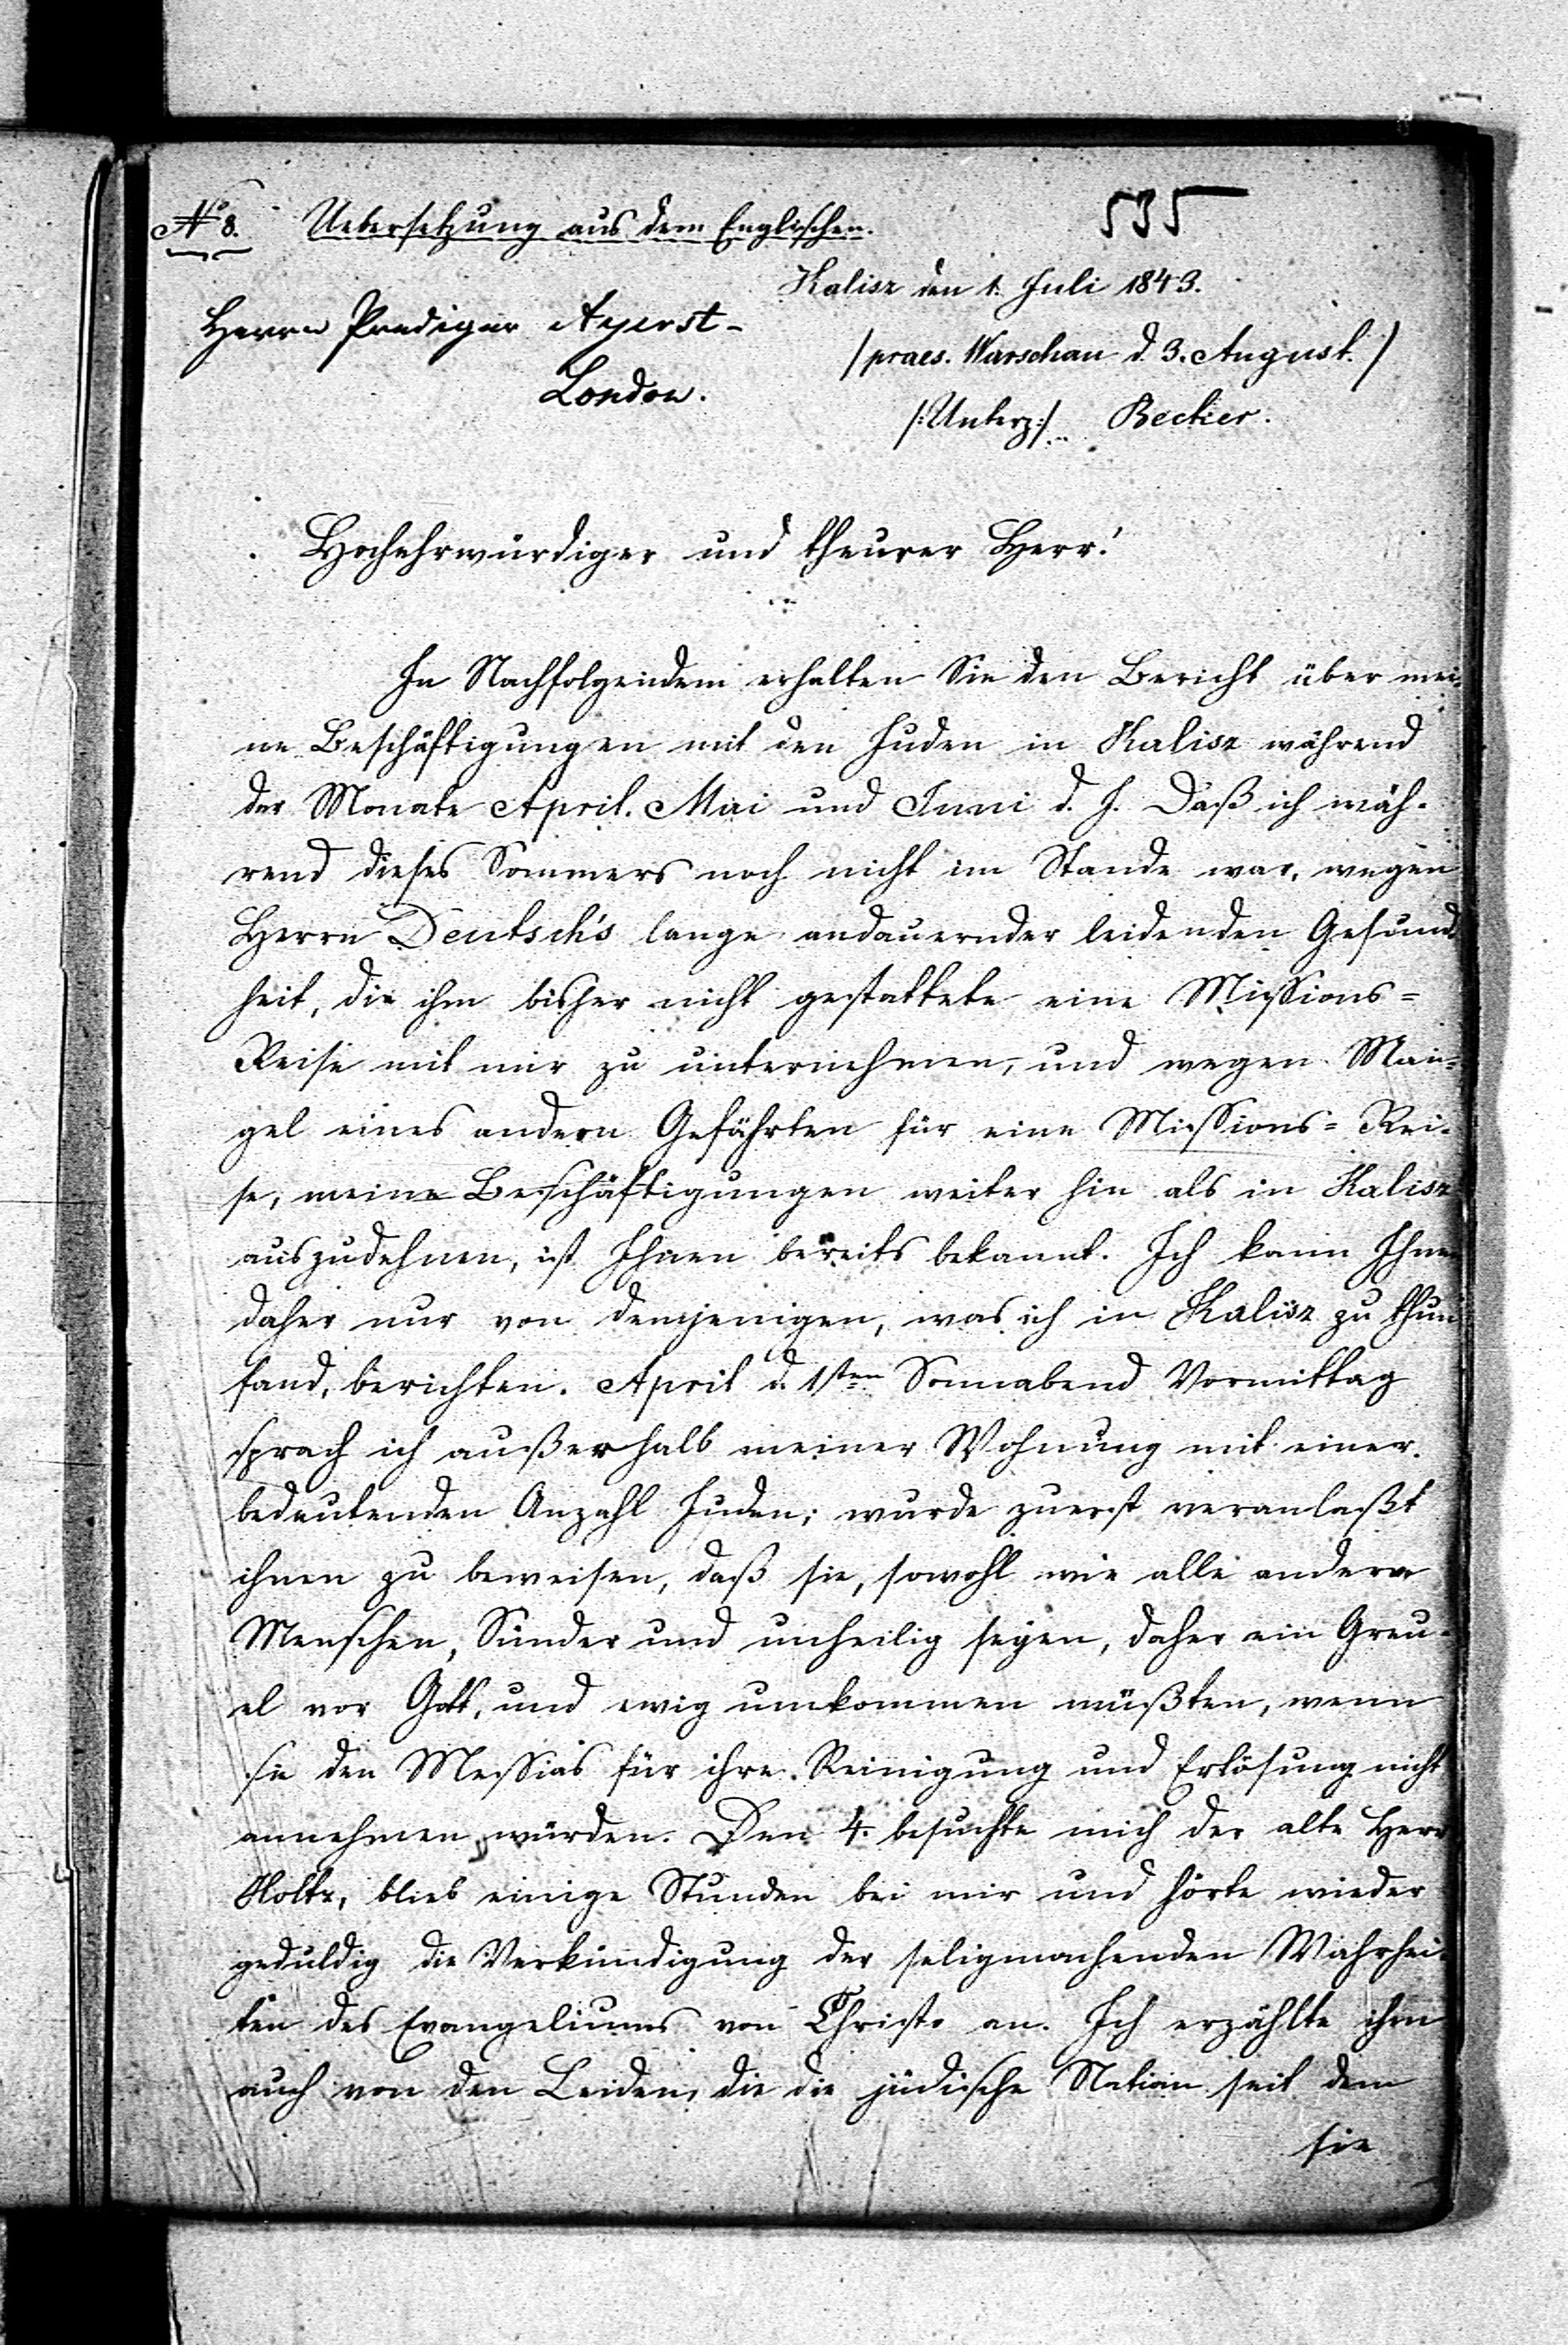 535
No 8. Uebersetzung aus dem Englischen.
Kalisz den 1. Juli 1843.
Herrn Prediger Ayerst-
/praes. Warschau d. 3. August./
London.
/:Unterz:/ Becker.
Hochehrwürdiger und theurer Herr!
In Nachfolgendem erhalten Sie den Bericht über mei-
ne Beschäftigungen mit den Juden in Kalisz während
der Monate April. Mai und Juni d. J. Daß ich wäh-
rend dieses Sommers noch nicht im Stande war, wegen
Herrn Deutsch's lange andauernder leidenden Gesund-
heit, die ihm bisher nicht gestattete eine Missions=
Reise mit mir zu unternehmen, und wegen Man=
gel eines andern Gefährten für eine Missions= Rei-
se, meine Beschäftigungen weiter hin als in Kalisz
auszudehnen, ist Ihnen bereits bekannt. Ich kann Ihnen
daher nur von demjenigen, was ich in Kalisz zu thun
fand, berichten. April d. 1sten Sonnabend Vormittag
sprach ich außerhalb meiner Wohnung mit einer
bedeutenden Anzahl Juden; wurde zuerst veranlaßt
ihnen zu beweisen, daß sie, sowohl wie alle andern
Menschen, Sünder und unheilig seyen, daher ein Greu-
el vor Gott, und ewig umkommen müßten, wenn
sie den Messias für ihre Reinigung und Erlösung nicht
annehmen würden. Den 4. besuchte mich der alte Herr
Holtz, blieb einige Stunden bei mir und hörte wieder
geduldig die Verkündigung der seligmachenden Wahrhei-
ten des Evangeliums von Christo an. Ich erzählte ihm
auch von den Leiden, die die jüdische Nation seit dem
sie